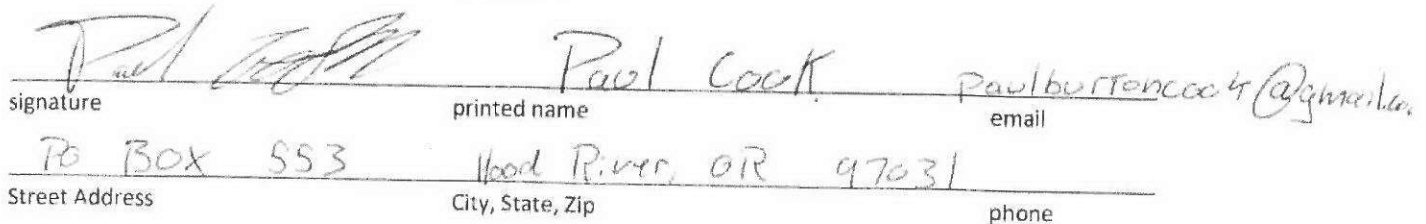 Paul Paul Cook paulburtoncook@gmail.co
signature printed name email
PO BOX 553 Hood River, OR 97031
Street Address City, State, Zip phone